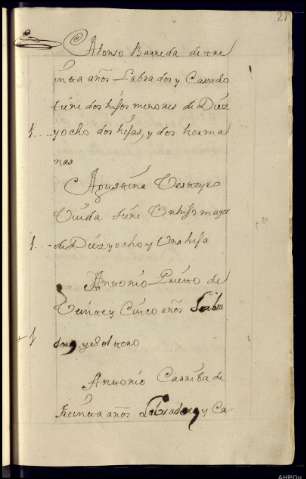 21
Alonso Barreda de tre
inta años Labrador y Casado
tiene dos hijos menores de Diez
1 yocho dos hijas, y dos herma
nas
Agustina
Viuda tiene Un hijo mayor
1 de Diez yocho y Una hija
Antonio Prieto de
Veinte y Cinco años Labra
1 dor y soltero
Antonio de
treinta años Labrador y Ca-
AHPOH